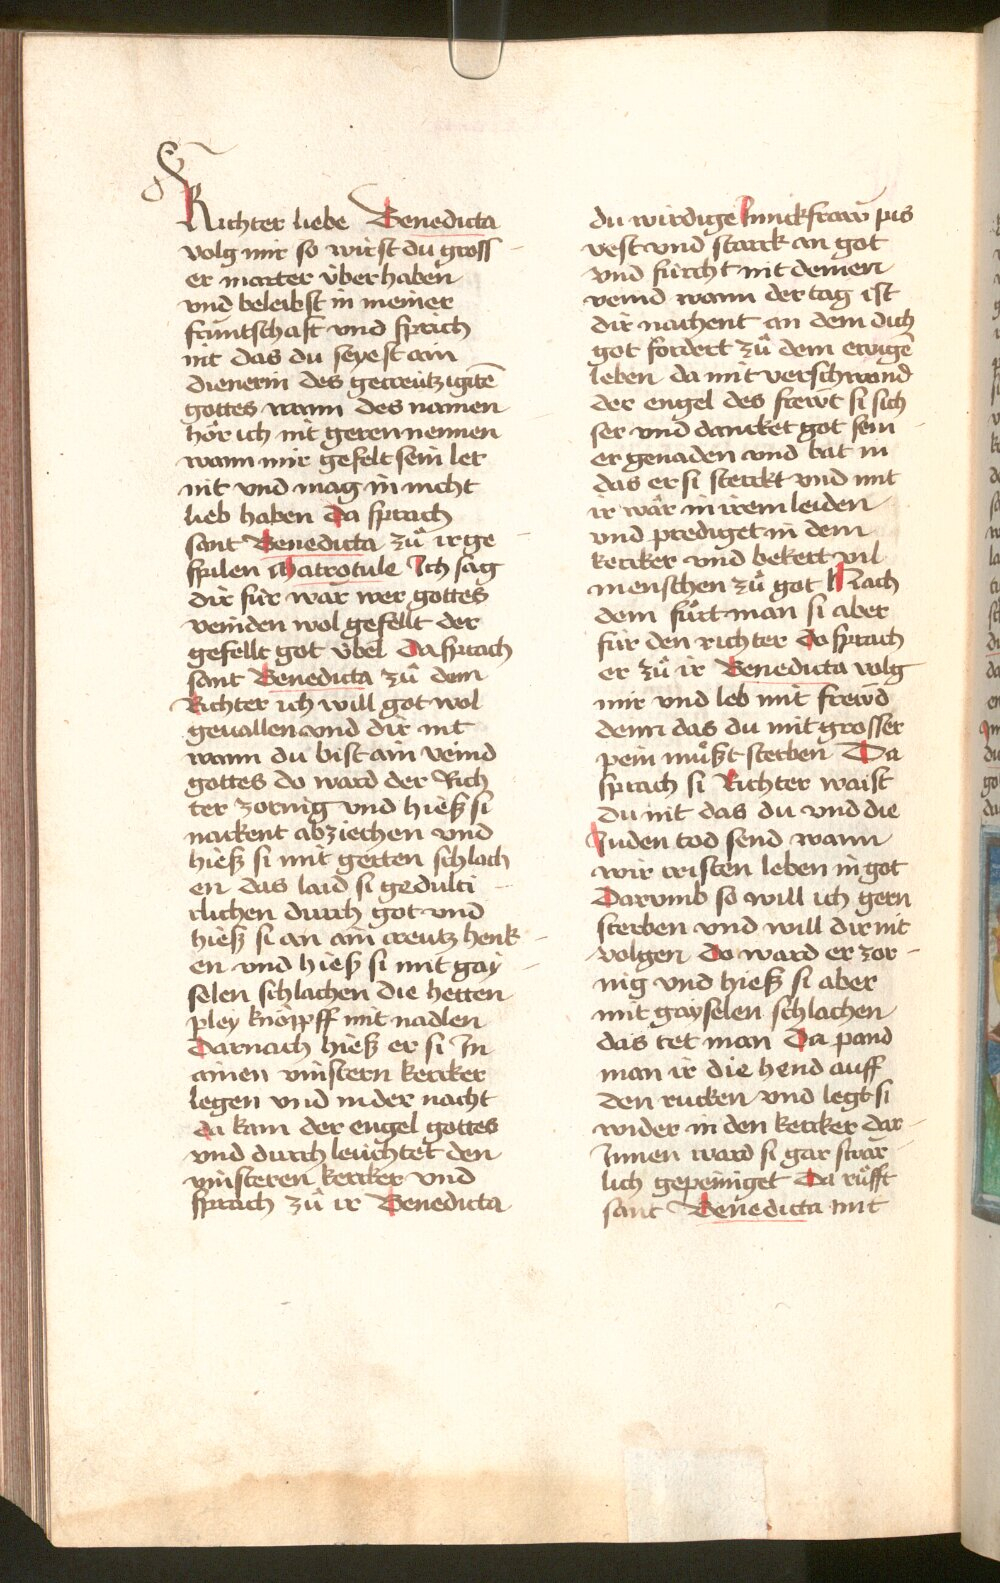 Richter liebe Benedicta
volg mir so wirst du gross
er marter überhaben
vnd beleibst in meiner
früntschafft vnd sprich
nit das du seyest ain
dienerin des gecreützigitē
gottes wann des namen
hör ich nit geren nennen
wann mir gefelt sein ler
nit vnd mag in nicht
lieb haben Da sprach
sant Benedicta zů ir ge
spilen Matrotule Ich sag
dir für war wer gottes
veinden wol gefellt der
gefellt got übel Da sprach
sant Benedicta zů dem
Richter ich will got wol
geuallen vnd dir nit
wann du bist ain veind
gottes do ward der Rich
ter zornig vnd hieß si
nackent abziechen vnd
hieß si mit gerten schlach
en das laid si gedulti
clichen durch got vnd
hieß si an ain creutz henk
en vnd hieß si mit gay
selen schlachen die hetten
pley knöpff mit nadlen
Darnach hieß er si In
ainen vinstern kercker
legen vnd in der nacht
da kam der engel gottes
vnd durch leüchtet den
vinsteren kercker vnd
sprach zů ir Benedicta
du wirdige Junckfraw pis
vest vnd starck an got
vnd fürcht nit deinen
veind wann der tag ist
dir nachent an dem dich
got fordert zů dem ewigē
leben da mit verschwand
der engel des frewt si sich
ser vnd dancket got sein
er genaden vnd bat in
das er si sterckt vnd mit
ir wär in irem leiden
vnd prediget in dem
kercker vnd bekert vil
menschen zů got Nach
dem fůrt man si aber
für den richter do sprach
er zů ir Benedicta volg
mir vnd leb mit frewd
denn das du mit grosser
pein můst sterben Da
sprach si Richter waist
du nit das du vnd die
Juden tod send wann
wir cristen leben in got
Darumb so will ich gern
sterben vnd will dir nit
volgen do ward er zor
nig vnd hieß si aber
mit gayselen schlachen
das tet man Da pand
man ir die hend auff
den rucken vnd legt si
wider in den kercker dar
Innen ward si gar swär
lich gepeiniget Da růfft
sant Benedicta mit